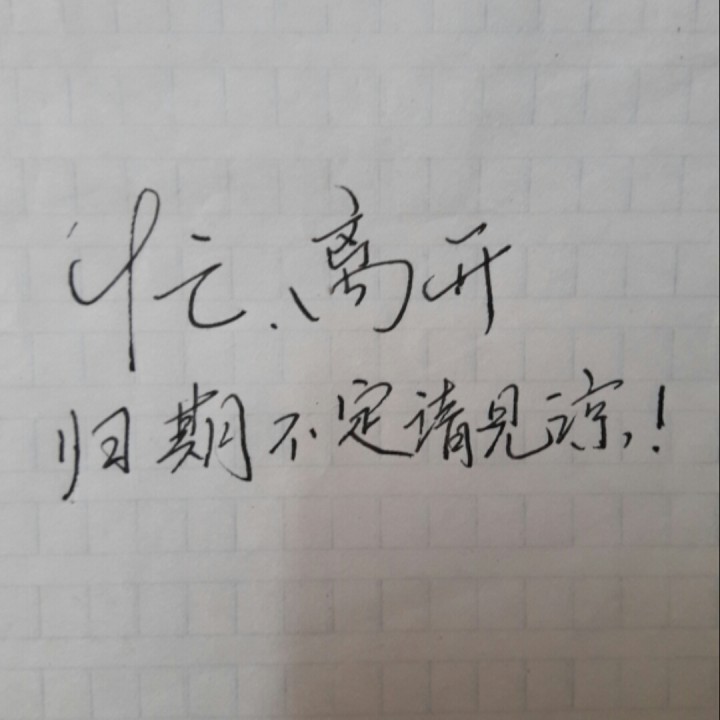 忙、离开
归期不定请见谅!